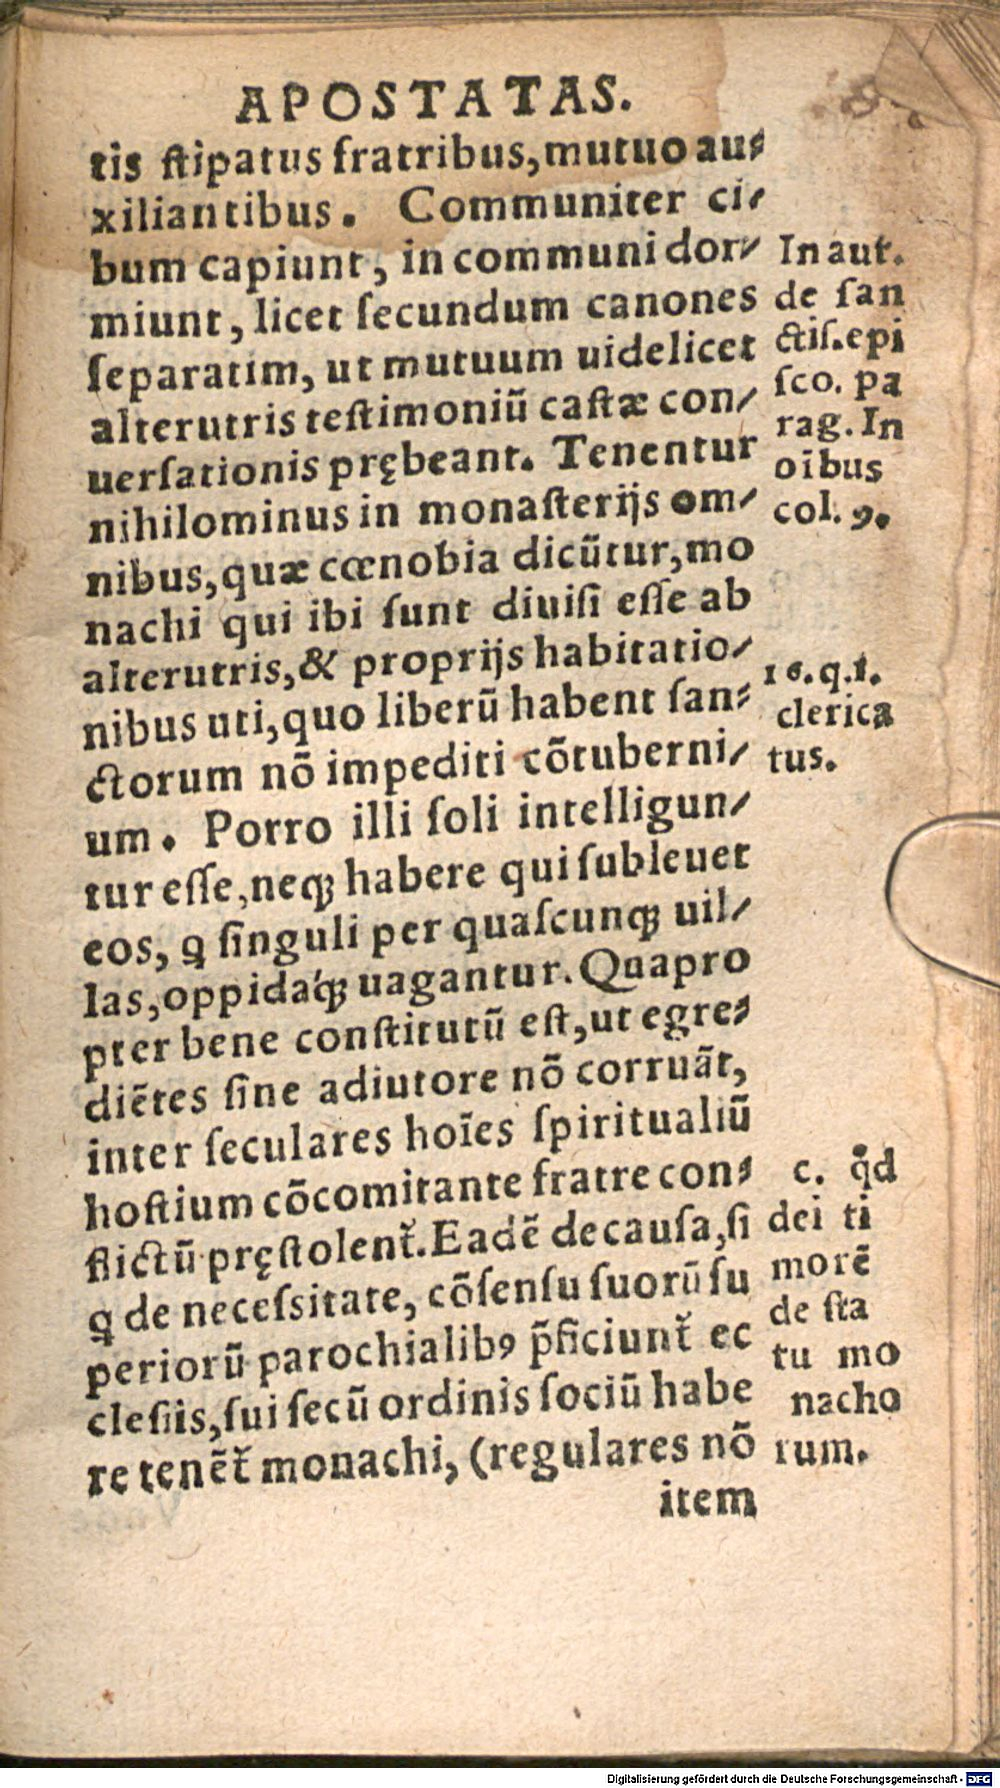 APOSTATAS.
tis ſtipatus fratribus, mutuo au⸗
xiliantibus. Communiter ci⸗
bum capiunt, in communi dor⸗
miunt, licet ſecundum canones
ſeparatim, ut mutuum uidelicet
alterutris teſtimoniũ caſtæ con⸗
uerſationis prębeant. Tenentur
nihilominus in monaſterijs om⸗
nibus, quæ cœnobia dicũtur, mo
nachi qui ibi ſunt diuiſi eſſe ab
alterutris, & proprijs habitatio⸗
nibus uti, quo liberũ habent ſan⸗
ctorum nõ impediti cõtuberni⸗
um. Porro illi ſoli intelligun⸗
tur eſſe, neqꝫ habere qui ſubleuet
eos, ꝗ ſinguli per quaſcunqꝫ uil⸗
las, oppida'qꝫ uagantur. Quapro
pter bene conſtitutũ eſt, ut egre⸗
diẽtes ſine adiutore nõ corruãt,
inter ſeculares hoĩes ſpiritualiũ
hoſtium cõcomitante fratre con⸗
flictũ pręſtolent᷑. Eadẽ de cauſa, ſi
ꝗ de neceſsitate, cõſenſu ſuorũ ſu
periorũ parochialibꝰ p̃ficiunt᷑ ec
cleſiis, ſui ſecũ ordinis ſociũ habe
re tenẽt᷑ monachi, (regulares nõ
item
In aut.
de ſan
ctiſ. epi
ſco. pa
rag. In
oĩbus
col. 9.
16. q. 1.
clerica
tus.
c. qͥd
dei ti
morẽ
de ſta
tu mo
nacho
rum.
Digitalisierung gefördert durch die Deutsche Forschungsgemeinschaft - DFG